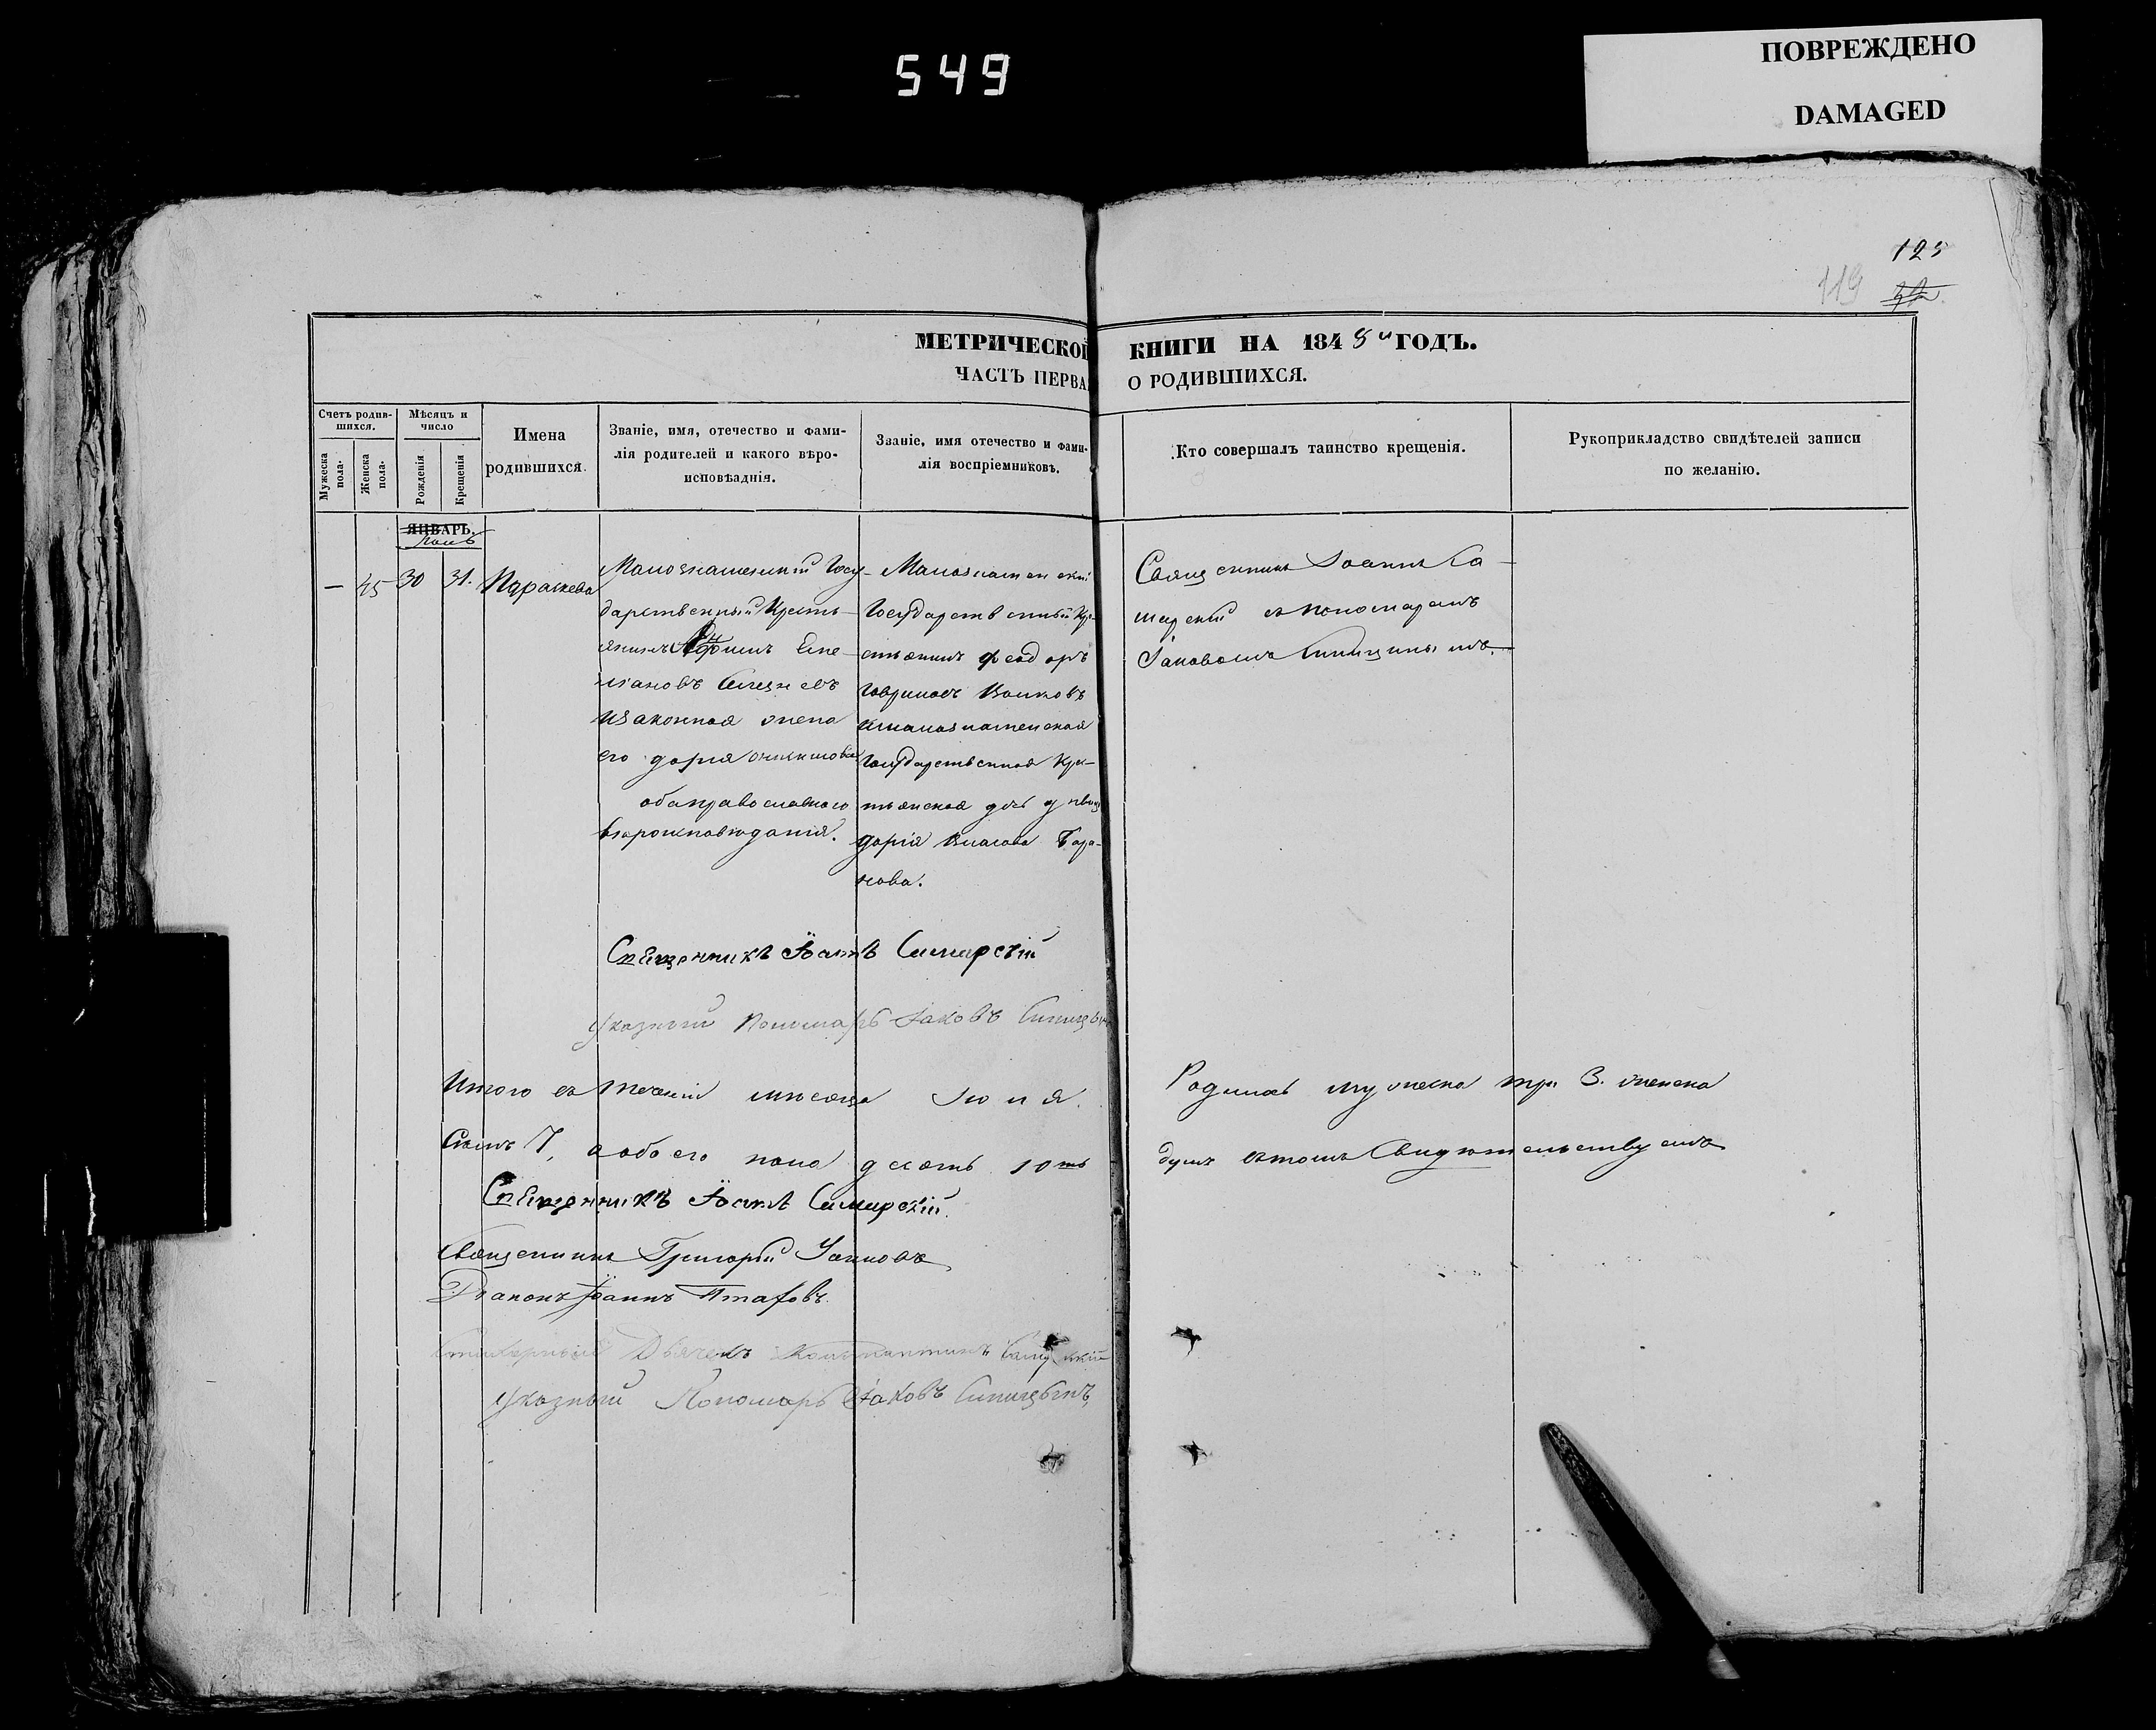 549
ПОВРЕЖДЕНО
DAMAGED
125
119
МЕТРИЧЕСКОЙ КНИГИ НА 1848 й ГОДЪ.
ЧАСТЬ ПЕРВА О РОДИВШИХСЯ.
Счетъ родив-
шихся.
Мужеска
пола.
Женска
пола.
Мѣсяцъ и
число
Рожденія
Крещенія
Имена
родившихся.
Званіе, имя, отечество и фами-
лія родителей и какого вѣро-
исповѣаднія.
Званіе, имя отечество и фами-
лія воспріемниковъ.
Кто совершалъ таинство крещенія.
Рукоприкладство свидѣтелей записи
по желанію.
ЯНВАРЬ.
— 45 30 31. Параскева
Госу-
дарственный Кресть-
янинъ Сте-
пановъ
Изаконная жена
его дарія
оба православнаго
вѣроисповѣданія.
Государственный Кре-
стьянинъ Феодоръ
Гавриловъ Волковъ
Государственная Кре-
стьянская дѣвица
дарія Власова Бара-
нова.
Священникъ Іоаннъ Са-
марскій съ пономаремъ
Іаковомъ Синицынымъ.
Священникъ Іоаннъ Самарскій
Указный Пономарь Іаковъ Синицынъ
Итого въ теченіи мѣсяца Іюля.
Родилось мужеска три 3. женска
Семь 7, а обоего пола десять 10ть
душъ вътомъ Свидѣтельствуемъ
Священникъ Іоаннъ Самарскій.
Священникъ Григорій
Діаконъ Іоаннъ
Дьячекъ Константинъ
Указный Пономарь Іаковъ Синицынъ,